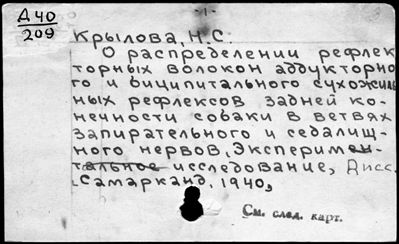 Д 40
209
- 1 -
Крылова, Н.С.
О распределении рефлек
торных волокон аддукторно
го и биципитального сухожиль
ных рефлексов задней ко-
нечности собаки в ветвях
запирательного и седалищ-
ного нервов, Эксперимен-
тальное исследование, Дисс.
Самарканд, 1940,
См. след. карт.